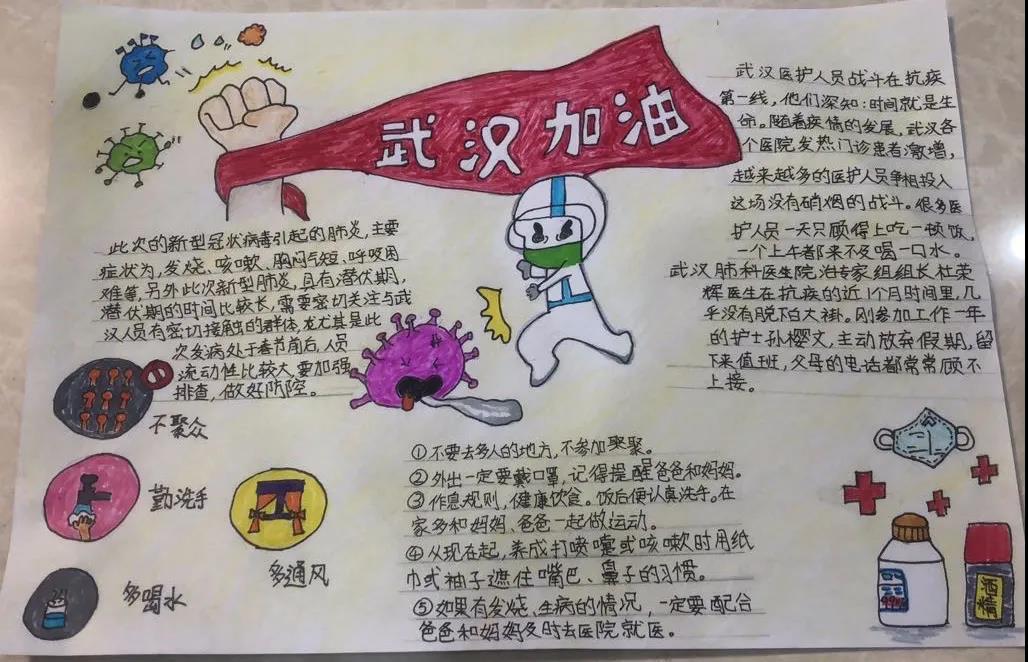 武汉加油
此次的新型冠状病毒引起的肺炎,主要
症状为,发烧、咳嗽、胸闷气短、呼吸困
难等,另外此次新型肺炎,具有潜伏期,
潜伏期的时间比较长,需要密切关注与武
汉人员有密切接触的群体,尤其是此
次发病处于春节前后,人员
流动性比较大,要加强
排查,做好防控。
武汉医护人员战斗在抗疾
第一线,他们深知:时间就是生
命。随着疾情的发展,武汉各
个医院发热门诊患者激增,
越来越多的医护人员争相投入
这场没有硝烟的战斗。很多医
护人员一天只顾得上吃一顿饭,
一个上午都来不及喝一口水。
武汉肺科医生院治专家组组长杜荣
辉医生在抗疾的近1个月时间里,几
乎没有脱下白大褂。刚参加工作一年
的护士孙樱文,主动放弃假期,留
下来值班,父母的电话都常常顾不
上接。
不聚众
勤洗手
多通风
多喝水
①不要去多人的地方,不参加聚聚。
②外出一定要戴口罩,记得提醒爸爸和妈妈。
③作息规则,健康饮食。饭后便认真洗手。在
家多和妈妈、爸爸一起做运动。
④从现在起,养成打喷嚏或咳嗽时用纸
巾或袖子遮住嘴巴、鼻子的习惯。
⑤如果有发烧、生病的情况,一定要配合
爸爸和妈妈及时去医院就医。
酒精